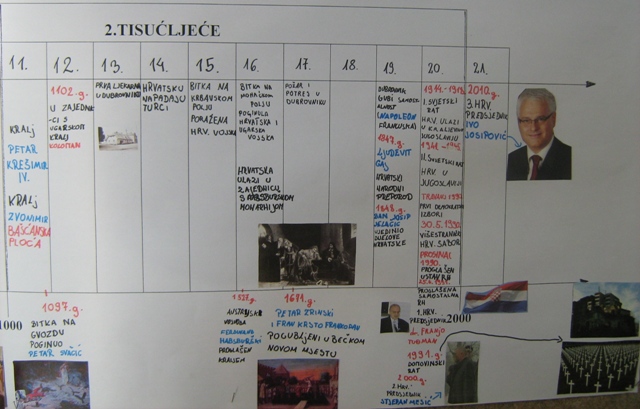 2.TISUĆLJEĆE
11.
12.
13.
14.
15.
16.
17.
18.
19.
20.
21.
KRALJ
PETAR
KREŠIMIR
IV.
KRALJ
ZVONIMIR
BAŠĆANSKA
PLOČA
1102.g.
U ZAJEDNI-
CI S
UGARSKOM
KRALJ
KOLOMAN
PRVA LJEKARNA
U DUBROVNIKU
HRVATSKU
NAPADAJU
TURCI
BITKA NA
KRBAVSKOM
POLJU
PORAŽENA
HRV. VOJSKA
BITKA NA
POLJU
POGINULA
HRVATSKA I
UGARSKA
VOJSKA
HRVATSKA
ULAZI U
ZAJEDNICU
S HABSBURŠKOM
MONARHIJOM
POŽAR I
POTRES U
DUBROVNIKU
GUBI
(NAPOLEON
FRANCUSKA)
1847.g.
LJUDEVIT
GAJ
HRVATSKI
NARODNI
PREPOROD
1848.g.
BAN JOSIP
JELAČIĆ
UJEDINIO
DIJELOVE
HRVATSKE
1914-1918
I.SVJETSKI
RAT
HRV. ULAZI
U KRALJEVINU
JUGOSLAVIJU
1941-1945
II.SVJETSKI RAT
HRV U
JUGOSLAVIJI
TRAVANJ
PRVI DEMOKRATSKI
IZBORI
30.5.1990
VIŠESTRANAČKI
HRV. SABOR
PROSINAC
1990.
PROGLAŠEN
USTAV RH
PROGLAŠENA
SAMOSTALNA
RH
1.HRV.
PREDSJEDNIK
dr. FRANJO
TUĐMAN
1991.g
DOMOVINSKI
RAT
2000.g.
2.HRV.
PREDSJEDNIK
STJEPAN MESIĆ
2010.g
3.HRV.
PREDSJEDNIK
IVO
JOSIPOVIĆ
1000
2000
1097.g.
BITKA NA
GVOZDU
POGINUO
PETAR SVAČIĆ
1527.g.
FERDINAND
HABSBURŠKI
PROGLAŠEN
KRALJEM
1671.g.
PETAR ZRINSKI
I FRAN KRSTO FRANKOPAN
POGUBLJENI U BEČKOM
NOVOM MJESTU